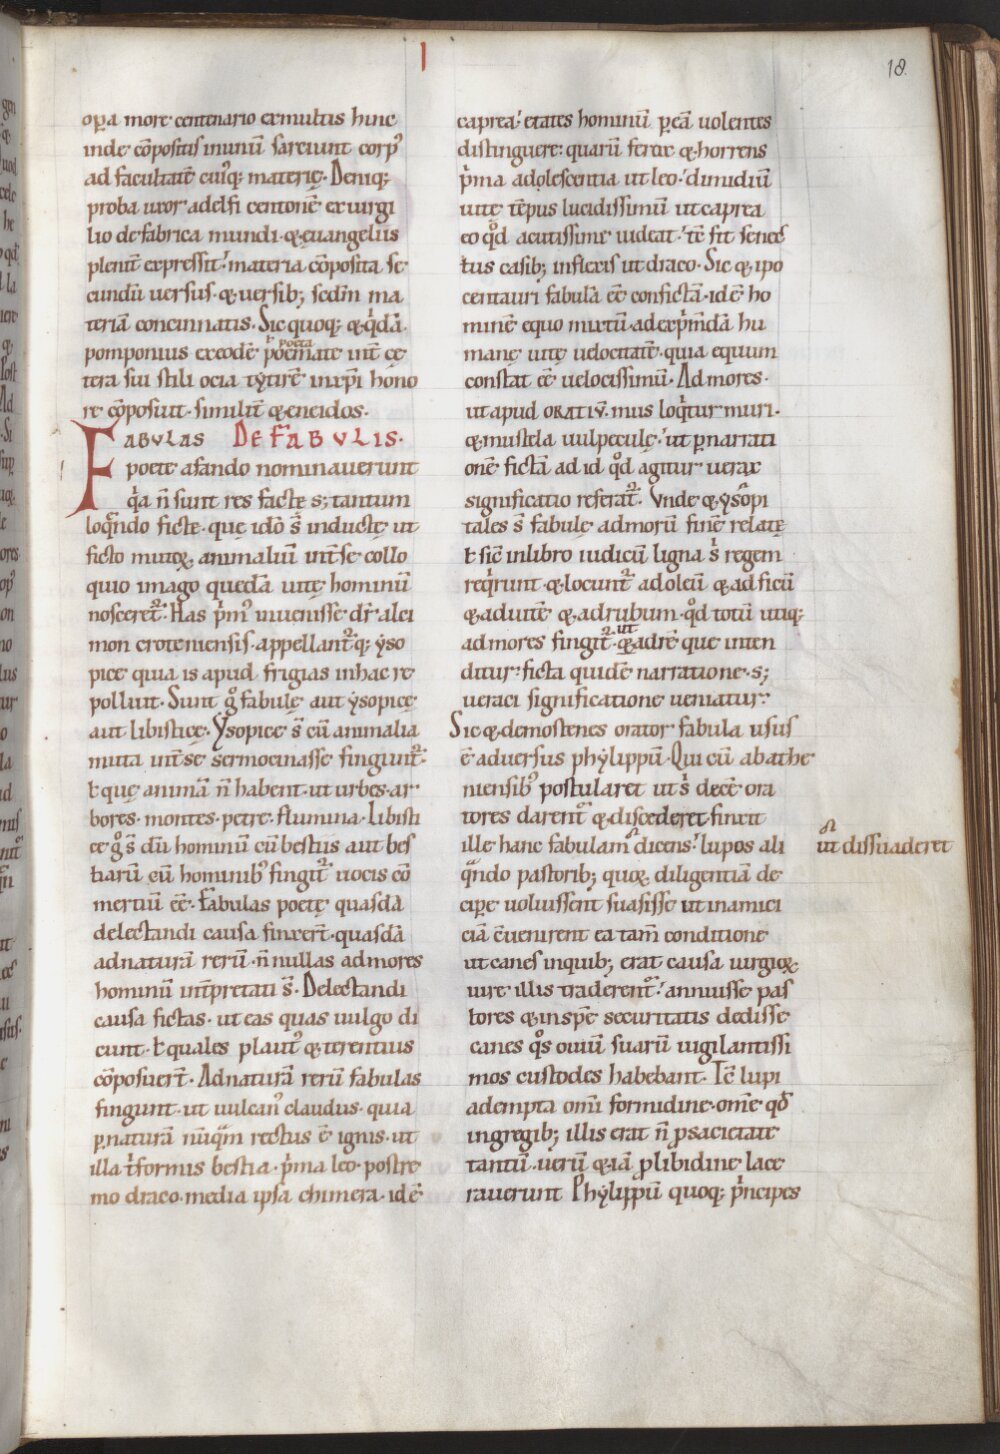 I
18
oꝑa more centenario exmultis hinc
inde cōpositis inunū sarciunt corp᾿
ad facultatē cui᾿q; materię. Deniq;
proba uxor adelfi centonē ex uirgi
lio de fabrica mundi. & euangeliis
plenit̄ expressit. materia cōposita se
cundū uersus. & uersib; sedm̄ ma
teriā concinnatis. Sic quoq; & q͛dā
pomponius exeodē poemate int̄ cę
ł poeta
tera sui stili ocia tẏtirē inxp̄i hono
re cōposuit. similit̄ & eneidos.
FABVLAS DE FABVLIS.
poete afando nominauerunt
q͛a n̄ sunt res factę s; tantum
loq̄ndo ficte. que idō s̄ inductę ut
ficto mutoꝝ animaliū int̄ se collo
quio imago quedā uitę hominū
nosceret᷑. Has p͛m᾿ inuenisse dr̄ alci
mon croteniensis. appellant᷑q; ẏso
pice quia is apud frigias inhac re
polluit. Sunt g͛ fabulę aut ẏsopicę
aut libisticę. Ẏsopice s̄ cū animalia
muta int̄ se sermocinasse fingunt᷑.
ł que animā n̄ habent. ut urbes. ar
bores. montes. petre. flumina. Libisti
cę g͛ s̄ dū hominū cū bestiis aut bes
tiarū cū hominib᾿ fingit᷑ uocis cō
mertiū ēē. Fabulas poetę quasdā
delectandi causa finxer̄t. quasdā
adnaturā rerū. n̄nullas admores
hominū int̄pretati s̄. Delectandi
causa fictas. ut eas quas uulgo di
cunt. ł quales plaut᾿ & terentius
cōposuer̄t. Adnaturā rerū fabulas
fingunt. ut uulcan᾿ claudus. quia
ꝑ naturā nūq̄m rectus ē ignis. ut
illa t͛formis bestia. p͛ma leo. postre
mo draco. media ipsa chimera. idē
caprea. etates hominū ꝑ eā uolentes
distinguere. quarū ferox & horrens
p͛ma adolescentia ut leo. dimidiū
uitę tēpus lucidissimū ut caprea
eo qd̄ acutissime uideat. tē fit senec
tus casib; inflexis ut draco. Sic & ipo
centauri fabulā ēē confictā. idē ho
minē equo mixtū. adexp͛mdā hu
manę uitę uelocitatē. quia equum
constat ēē uelocissimū. Ad mores.
ut apud oratiū. mus loq͛tur muri.
& mustela uulpeculę. ut ꝑ narrati
onē fictā ad id qd̄ agitur uerax
significatio referat᷑. Vnde & ẏsopi
tales s̄ fabulę admorū finē relatę
ł sic̄ inlibro iudicū ligna s͛ regem
req͛runt & locunt᷑ adoleū & adficū
& aduitē & adrubum. qd̄ totū utiq;
admores fingit᷑. ut adrē que inten
ditur. ficta quidē narratione. s;
ueraci significatione ueniatur.
Sic & demostenes orator fabula usus
ē aduersus phẏlippū. Qui cū abathe
niensib᾿ postularet ut s͛ decē ora
tores darent᷑ & discederet. finxit
ille hanc fabulam dicens. lupos ali
ut dissuaderet
q̄ndo pastorib; quoꝝ diligentiā de
cipe uoluissent suasisse ut inamici
ciā c̄uenirent ea tam̄ conditione
ut canes inquib; erat causa iurgioꝝ
iure illis traderent᷑. annuisse pas
tores & inspē securitatis dedisse
canes qͦs ouiū suarū uigilantissi
mos custodes habebant. Tē lupi
adempta omī formidine. om̄e qd̄
ingregib; illis erat n̄ ꝓ sacietate
tantū. uerū &iā ꝓ libidine lace
rauerunt Phẏlippū quoq; p͛ncipes